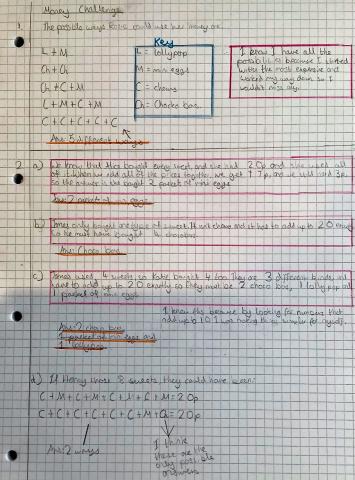 Money Challenge
1.
The possible ways Rosie could use her money are:
L + M
Ch + Ch
Ch + C + M
L + M + C + M
C + C + C + C + C
Ans: 5 different ways
Key
L = lollypop
M = mini eggs
C = chews
Ch = Choco bar.
I know I have all the
possibilities because I started
with the most expensive and
worked my way down so I
wouldn't miss any.
2.
a) We know that Alex bought every sweet and she had 20p and she used all
of it. When we add all of the prices together, we get 17p, and we still need 3p,
so the answer is she bought 2 packets of mini eggs.
Ans: 2 packets of mini eggs
b) only bought one type of sweet. It isn't chews and it has to add up to 20 exactly
so he must have bought 4 chocobar
Ans: Choco bar.
c) used 4 sweets so Kate bought 4 too. They are 3 different kinds, and
have to add up to 20 exactly so they must be 2 choco bars, 1 lollypop and
1 packet of mini eggs
I know this because by looking for numbers that
add up to 10
Ans: 2 choco bars,
1 packet of mini eggs and
1 lollypop
d) If Henry chose 8 sweets, they could have been:
= 20p
= 20p
Ans: 2 ways
I think
these are the
only possible
answers